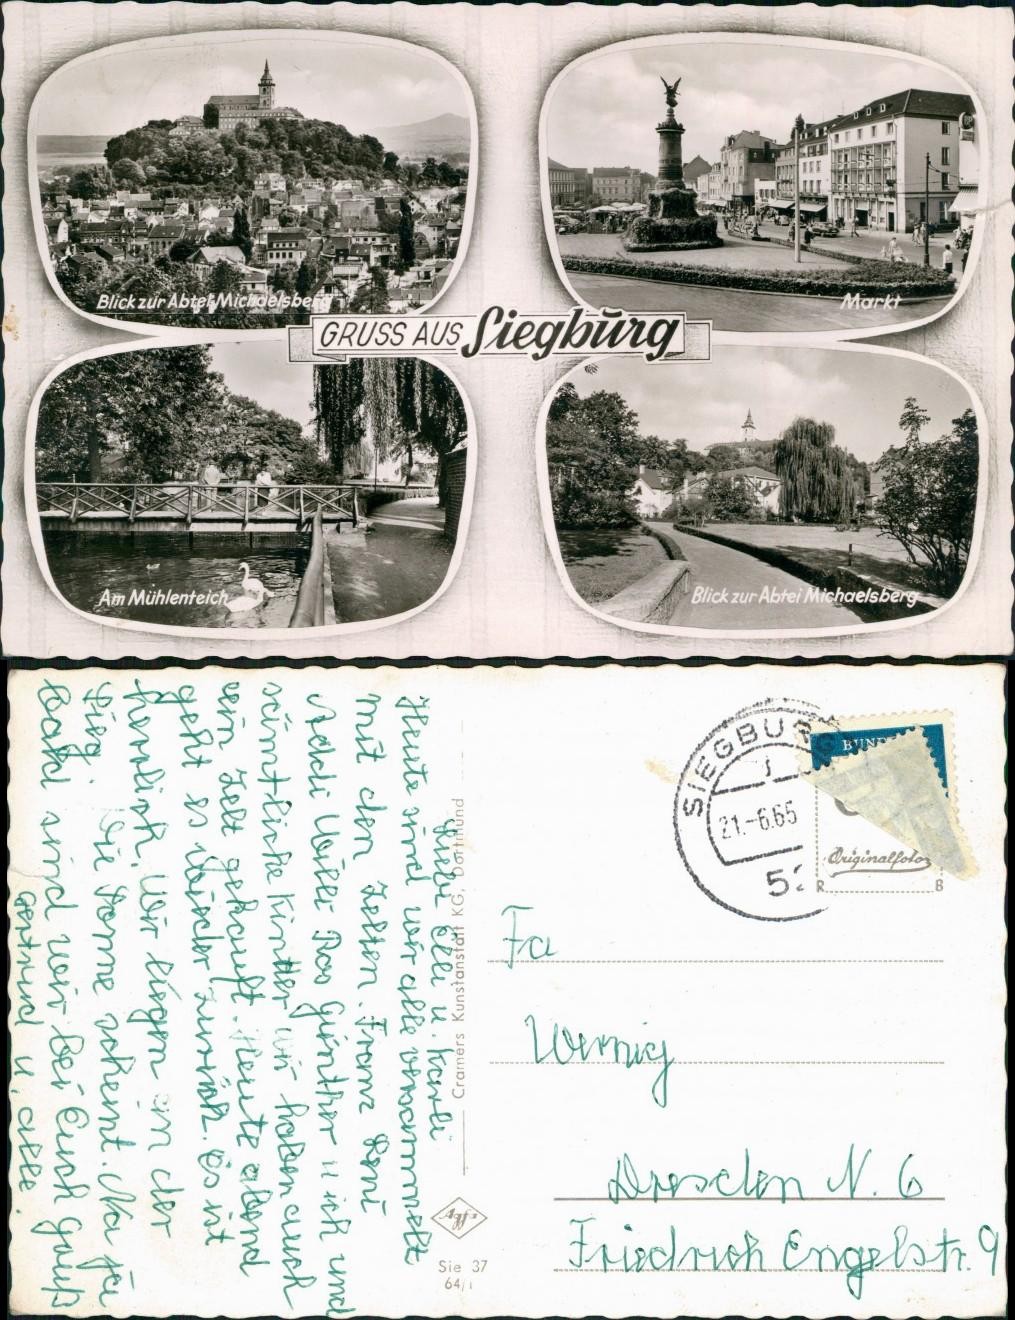 Blick zur Abtei Michaelsberg
Markt
GRUSS AUS Siegburg
Am Mühlenteich
Blick zur Abtei Michaelsberg
Liebe Elli u. Karli
Heute sind wir alle versammelt
mit den Zelten. Franz Leni
Addi Willi Ros Günther u ich und
sämtliche Kinder wir haben auch
ein Zelt gekauft. Heute abend
geht es wieder zurück. Es ist
herrlich. Wir liegen an der
Sieg. Die Sonne scheint. Na ja
bald sind wir bei Euch ganß
Gertrud u. alle.
Cramers Kunstanstalt KG, Dortmund
Agfa
Sie 37
64/1
SIEGBURG
21.-6.65
52
BUN
Originalfoto
R B
Fa
Wernig
Dresden N. 6
Friedrich Engelstr. 9